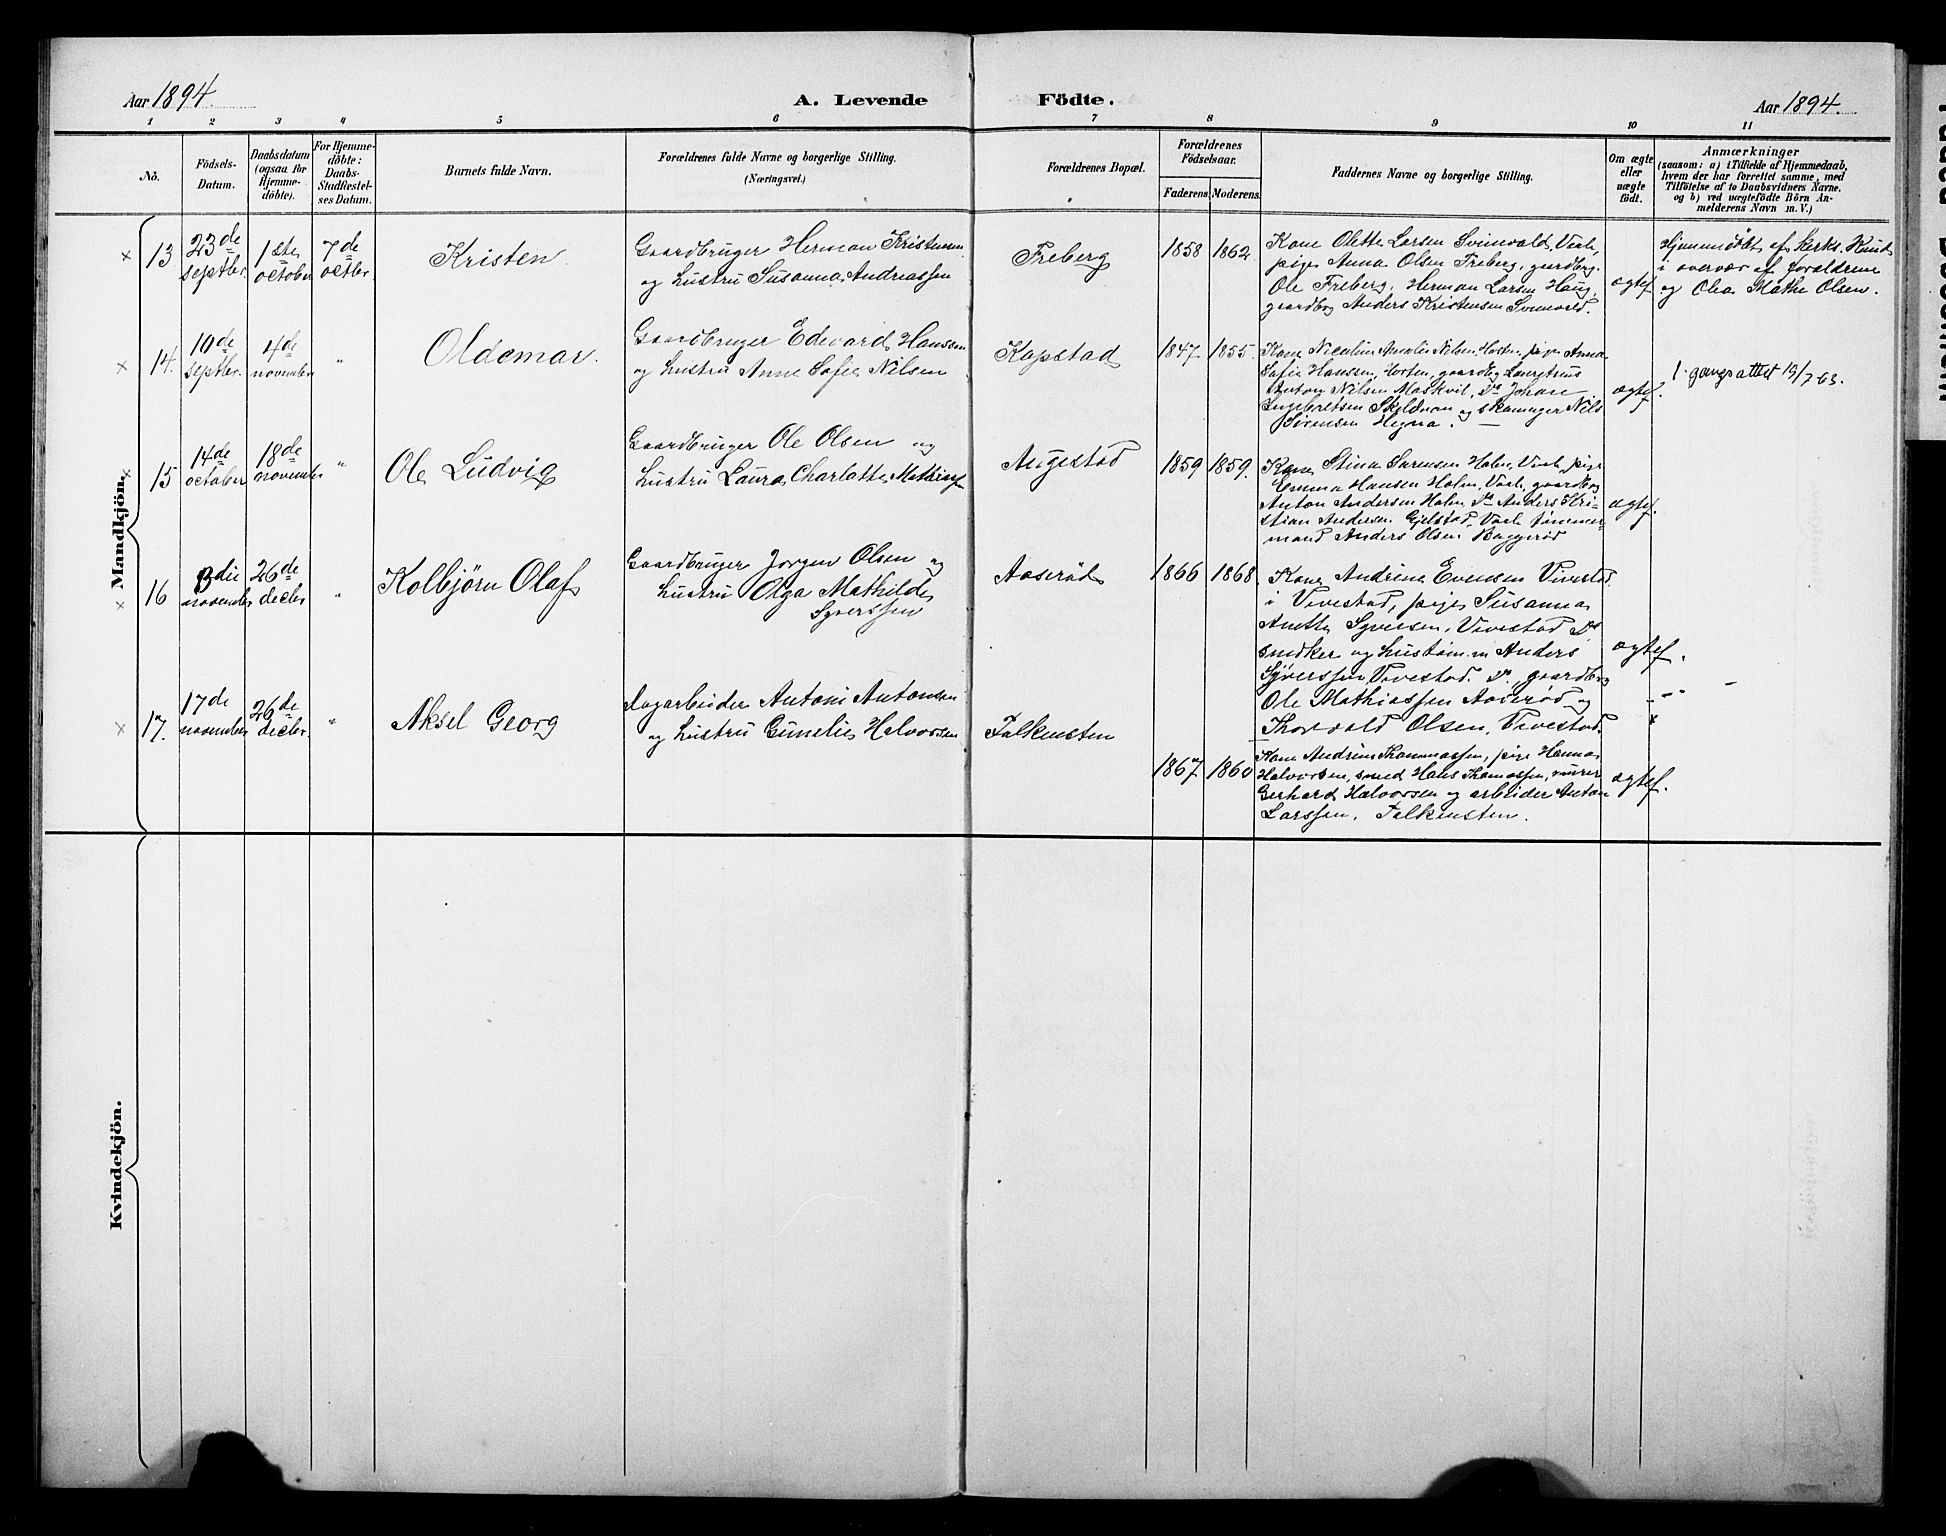 Aar 1894.
A. Levende Födte.
Aar 1894.
1 2 3 4 5 6 7 8 9 10 11
No.
Födsels-
Datum.
Daabsdatum
(ogsaa for
Hjemme-
döbte).
For Hjemme-
döbte:
Daabs-
Stadfæstel-
ses Datum.
Barnets fulde Navn.
Forældrenes fulde Navne og borgerlige Stilling.
(Næringsvei.)
Forældrenes Bopæl.
Forældrenes
Födselsaar.
Faderens. Moderens.
Faddernes Navne og borgerlige Stilling.
Om ægte
eller
uægte
födt.
Anmærkninger
(saasom: a) i Tilfælde af Hjemmedaab,
hvem der har forrettet samme, med
Tilföielse af to Daabsvidners Navne.
og b) ved uægtefödte Börn An-
melderens Navn m. V.)
Mandkjön.
13
23de
septbr.
1ste
october
7de
octbr
Kristen
Gaardbruger Herman Kristensen
og hustru Susanna Andreassen
Freberg
1858 1862
Kone Olette Larsen Svinvold, Varle,
pige Anna Olsen Freberg, gaardbr.
Ole Freberg, Herman Larsen Haug,
gaardbrg Anders Kristensen Svinvold.
ægtef
Hjemmedöbt af kirks. Knut
i overvær af forældrene
og Olea Mathe Olsen.
14.
10de
septbr.
4de
november
"
Oldemar.
Gaardbruger Edevard Hansen
og hustru Anne Sofie Nilsen
Kopstad
1847. 1855.
Kone Nicoline Amalie Nilsen, Horten, pige Anna
Sofie Hanssen, Horten, gaardbrg Lauritius
Anton Nilsen Maskvil, Do Johan
Ingebretsen Skjeldnan og skomager Nils
Sörensen Hegna.
ægtef.
1. gangs attest 19/7 63.
15
14de
october
18de
november
"
Ole Ludvig
Gaardbruger Ole Olsen og
hustru Laura Charlotte Mathisen
Augestad
1859 1859.
Kone Stina Sörensen Holm, Varle, pige
Emma Hansen Holm, Varle, gaardbrg
Anton Andersen Holm, Do Anders Kri-
stian Andersen Gjelstad, Varle tömmer-
mand Anders Olsen Baggeröd
ægtef.
16
3die
november
26de
decbr
"
Kolbjörn Olaf
Gaardbruger Jorgen Olsen og
hustru Olga Mathilde
Syverssen
Aaseröd
1866 1868.
Kone Andrine Evensen Vivestad
i Vivestad, pige Susanna
Anette Syversen, Vivestad Do
snedker og hustöm.m Anders
Syverssen Vivestad. Do, gaardbrg
Ole Mathiassen Aaseröd og
Thorvald Olsen, Vivestad.
ægtef.
17.
17de
november
26de
decbr.
"
Aksel Georg
Dagarbeider Antoni Antonsen
og hustru Gunelie Halvorsen
Falkensten
1867 1860
Kone Andrine Thommassen, pige Hanna
Halvorsen, smed Hans Thomassen, murer
Gerhard Halvorsen og arbeider Anton
Larssen, Falkensten.
ægtef.
Kvindekjön.